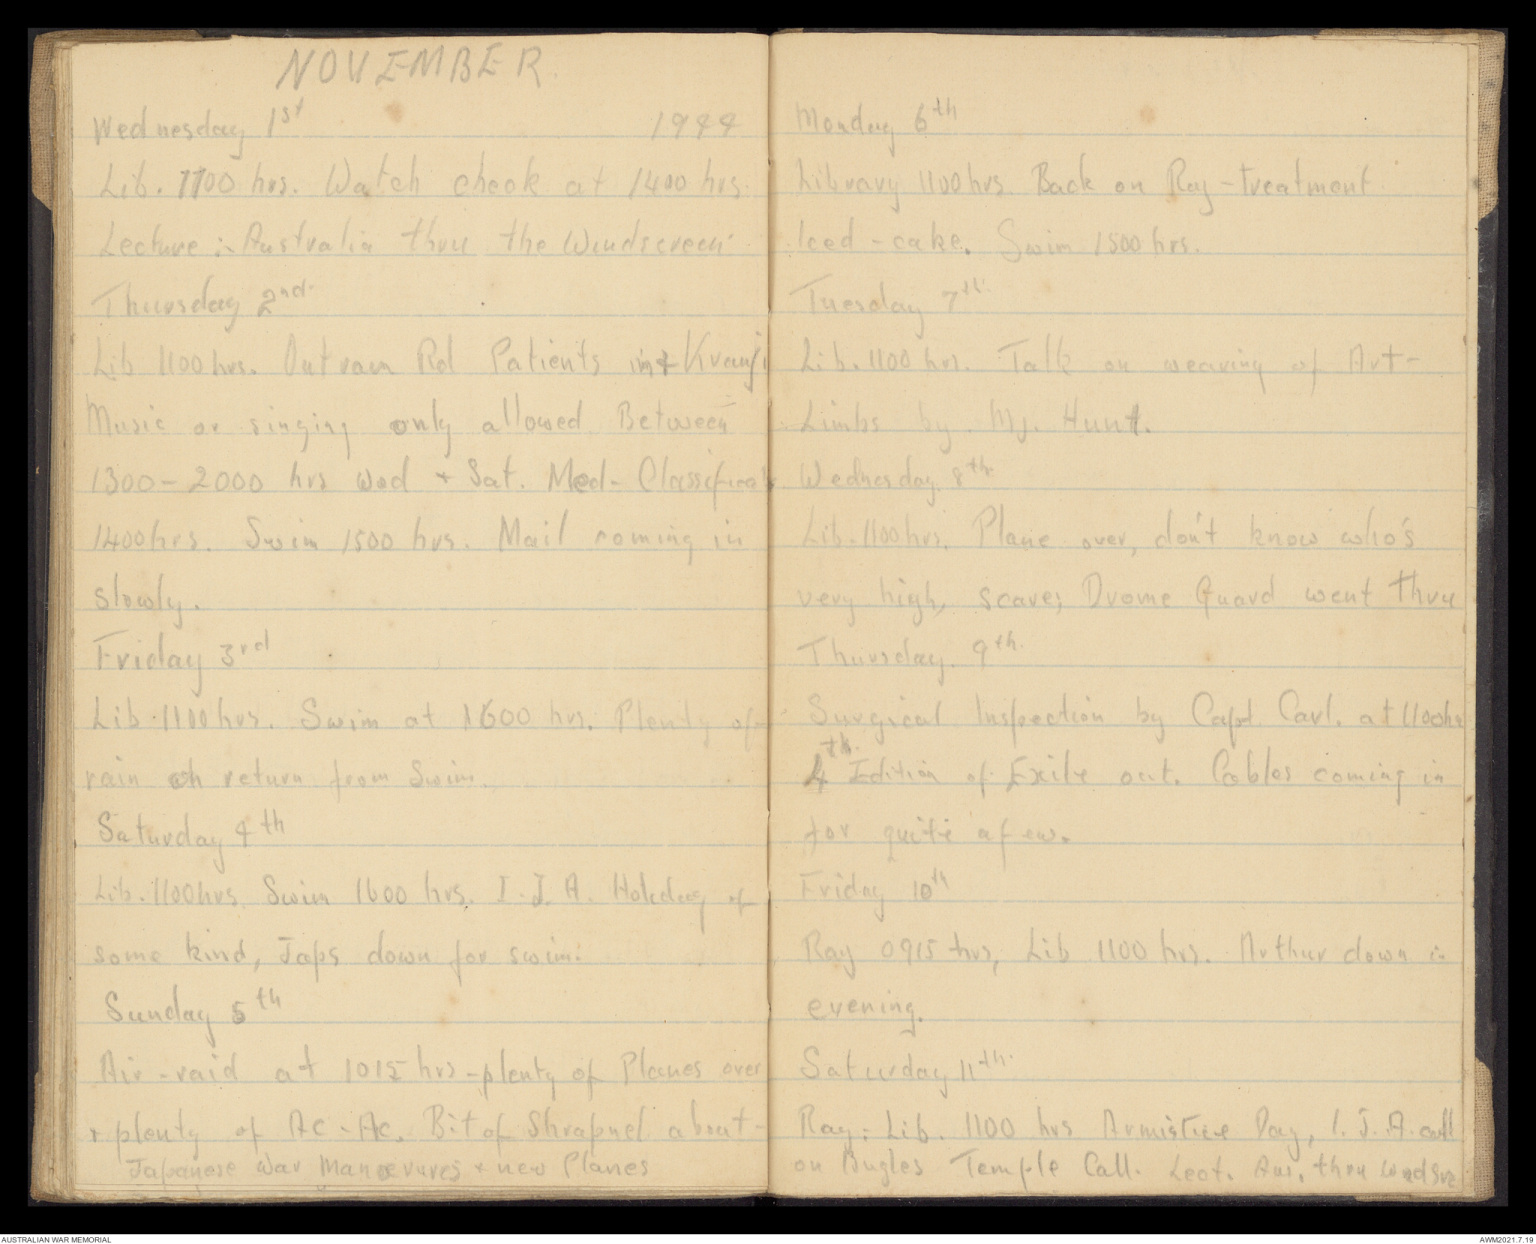 NOVEMBER.
Wednesday 1st 1944
Lib. 1100 hrs. Watch check at 1400 hrs.
Lecture :- Australia thru the Windscreen
Thursday 2nd.
Lib 1100 hrs. Outram Rd Patients int Kranji
Music or singing only allowed Between
1300-2000 hrs Wed + Sat. Med- Classificat
1400 hrs. Swim 1500 hrs. Mail coming in
slowly.
Friday 3rd
Lib. 1100 hrs. Swim at 1600 hrs. Plenty of
rain on return from Swim.
Saturday 4th
Lib. 1100 hrs Swim 1600 hrs. I.J.A. Holiday of
some kind, Japs down for swim.
Sunday 5th
Air-raid at 1015 hrs - plenty of Planes over
+ plenty of Ac-Ac. Bit of Shrapnel about-
Japanese War Manoevures + new Planes
Monday 6th
Library 1100 hrs Back on Ray-treatment
Iced-cake. Swim 1500 hrs.
Tuesday 7th.
Lib. 1100 hrs. Talk on wearing of Art-
Limbs by Mj. Hunt.
Wednesday 8th.
Lib. 1100 hrs. Plane over, don't know who's
very high, scare; Drome Guard went thru
Thursday. 9th.
Surgical Inspection by Capt. Carl. at 1100 hr
4th. Edition of Exile out. Cables coming in
for quite a few.
Friday 10th
Ray 0915 hrs, Lib 1100 hrs. Arthur down in
evening.
Saturday 11th.
Ray: Lib. 1100 hrs Armistice Day, I.J.A. call
on Bugles Temple Call. Lect. Aus. thru
AUSTRALIAN WAR MEMORIAL